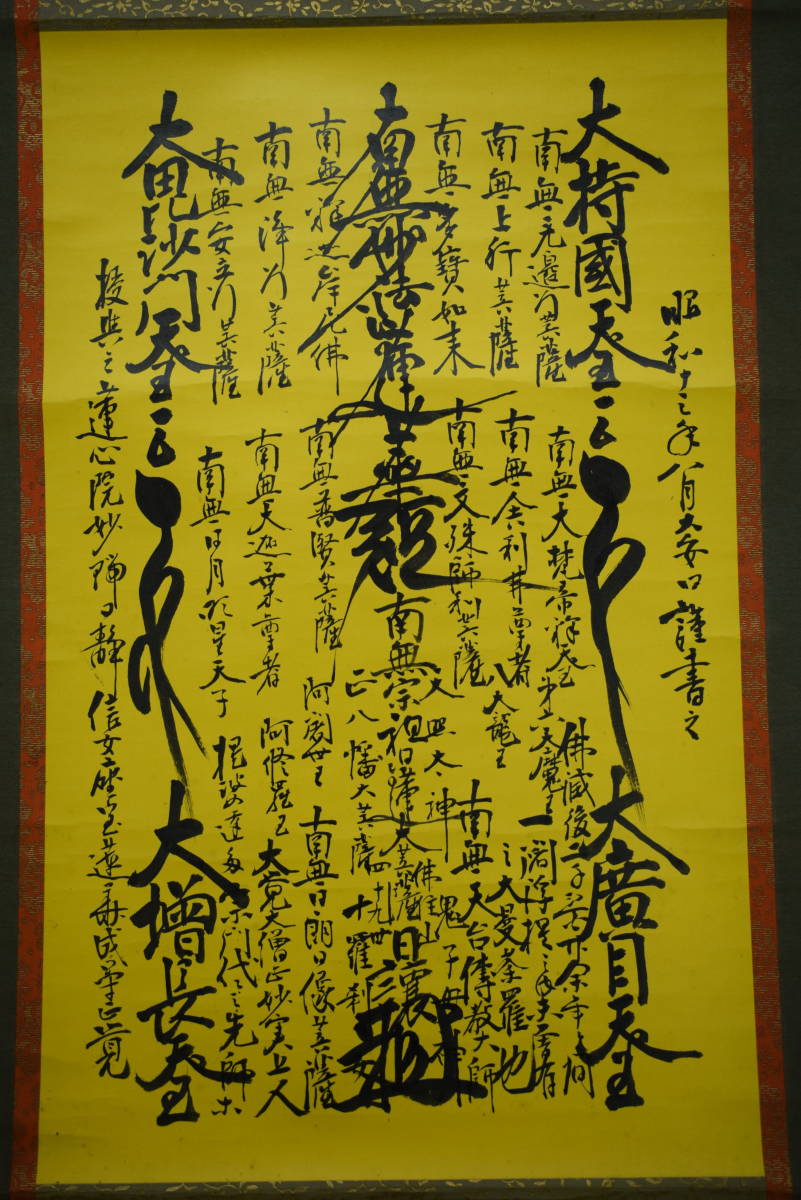 昭和十三年八月大安日謹書之
大持國天王
大廣目天王
南無无邊行菩薩
南無上行菩薩
南無多寶如来
南無妙法蓮華経
南無釋迦牟尼佛
南無浄行菩薩
南無安立行菩薩
大毘沙門天王
大増長天王
南無大梵帝釈天王
第六天魔王
南無舎利弗尊者
八大龍王
南無文殊師利菩薩
天照太神
南無普賢菩薩
正八幡大菩薩
南無大迦葉尊者
阿闍世王
南無日月明星天子
阿修羅王
提婆達多
佛滅後二千二百廿余年之間
一閻浮提之内未曽有
之大曼荼羅也
南無天台傳教大師
鬼子母神
十羅刹女
南無宗祖日蓮大菩薩
南無日朗日像菩薩
大覚大僧正妙実上人
宗門代々先師等
授與之蓮心院妙
日静信女座宝蓮華成等正覚